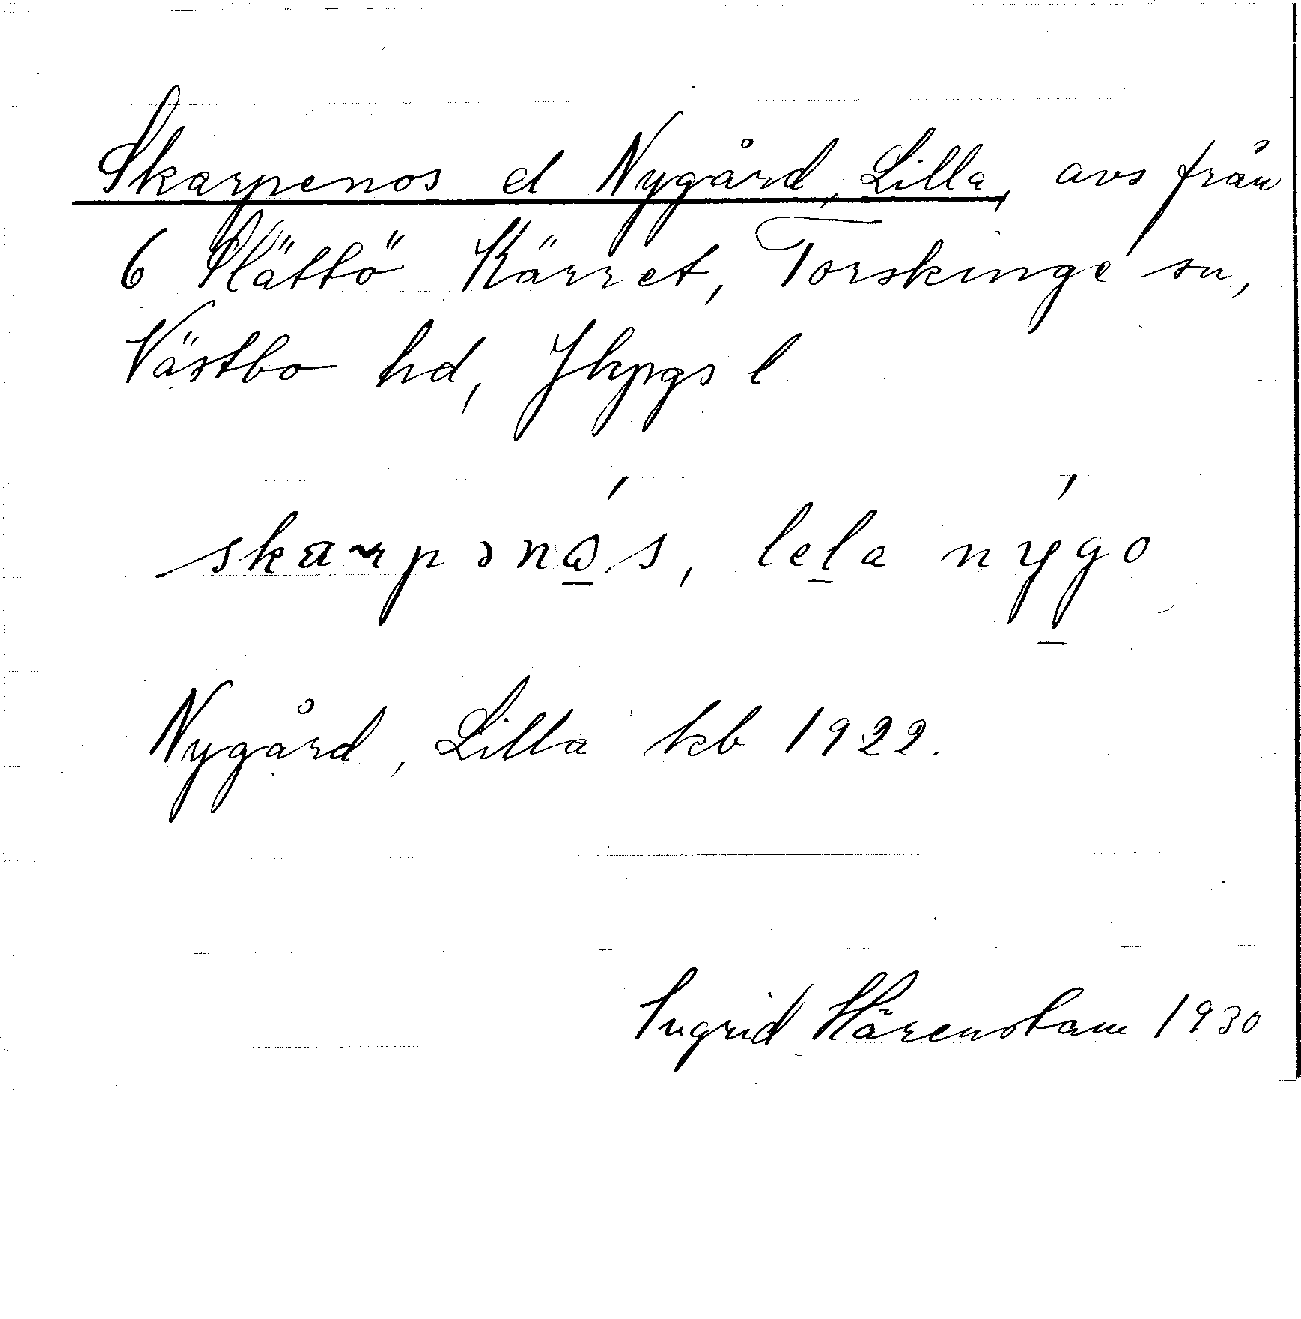 Skarpenos el Nygård, Lilla, avs från
6 Slättö Kärret, Torskinge sn,
Västbo hd, Jkpgs l
skarpənɷ́s, lela nýgo
Nygård, Lilla kb 1922.
Ingrid Härenstam 1930